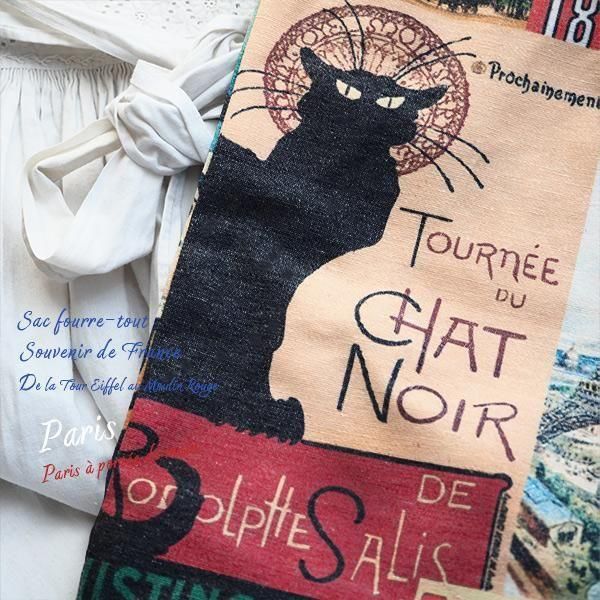 18
Prochainement
TOURNÉE
DU
CHAT
NOIR
DE
RODOLPHE SALIS
Sac fourre-tout
Souvenir de France
De la Tour Eiffel au Moulin Rouge
Paris
Paris à